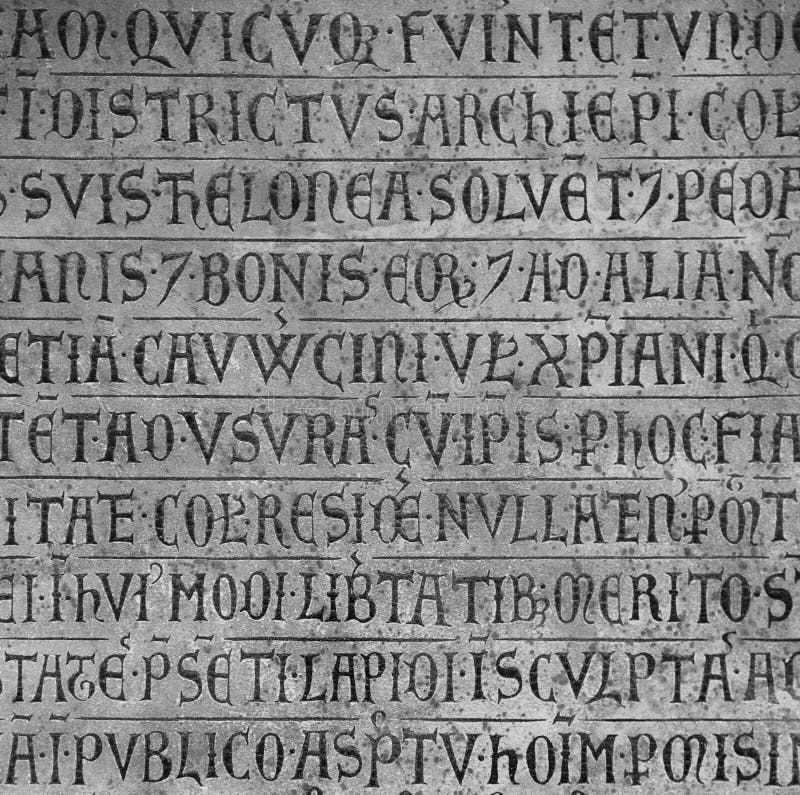 AM·QVICVQ3·FVINTETVND
I·DISTRICTVS·ARCHIEPI·COL
SVIS·THELONEA·SOLVET·7·PEDA
ANIS·7·BONIS·EOR·7·AD·ALIA·NO
ETIA·CAVWCINI·VL·XPIANI·Q·C
TET·AD·VSVRA·CV·IPIS·P·HOC·FIA
ITAE·COL·RESIDE·NVLLATEN·PMT
EI·I·HVI'MODI·LIBTATIB3·MERITO·S
TATE·PSETI·LAPIDI·ISCVLPTA·A
A·I·PVBLICO·ASPTV·HOIM·PMISI